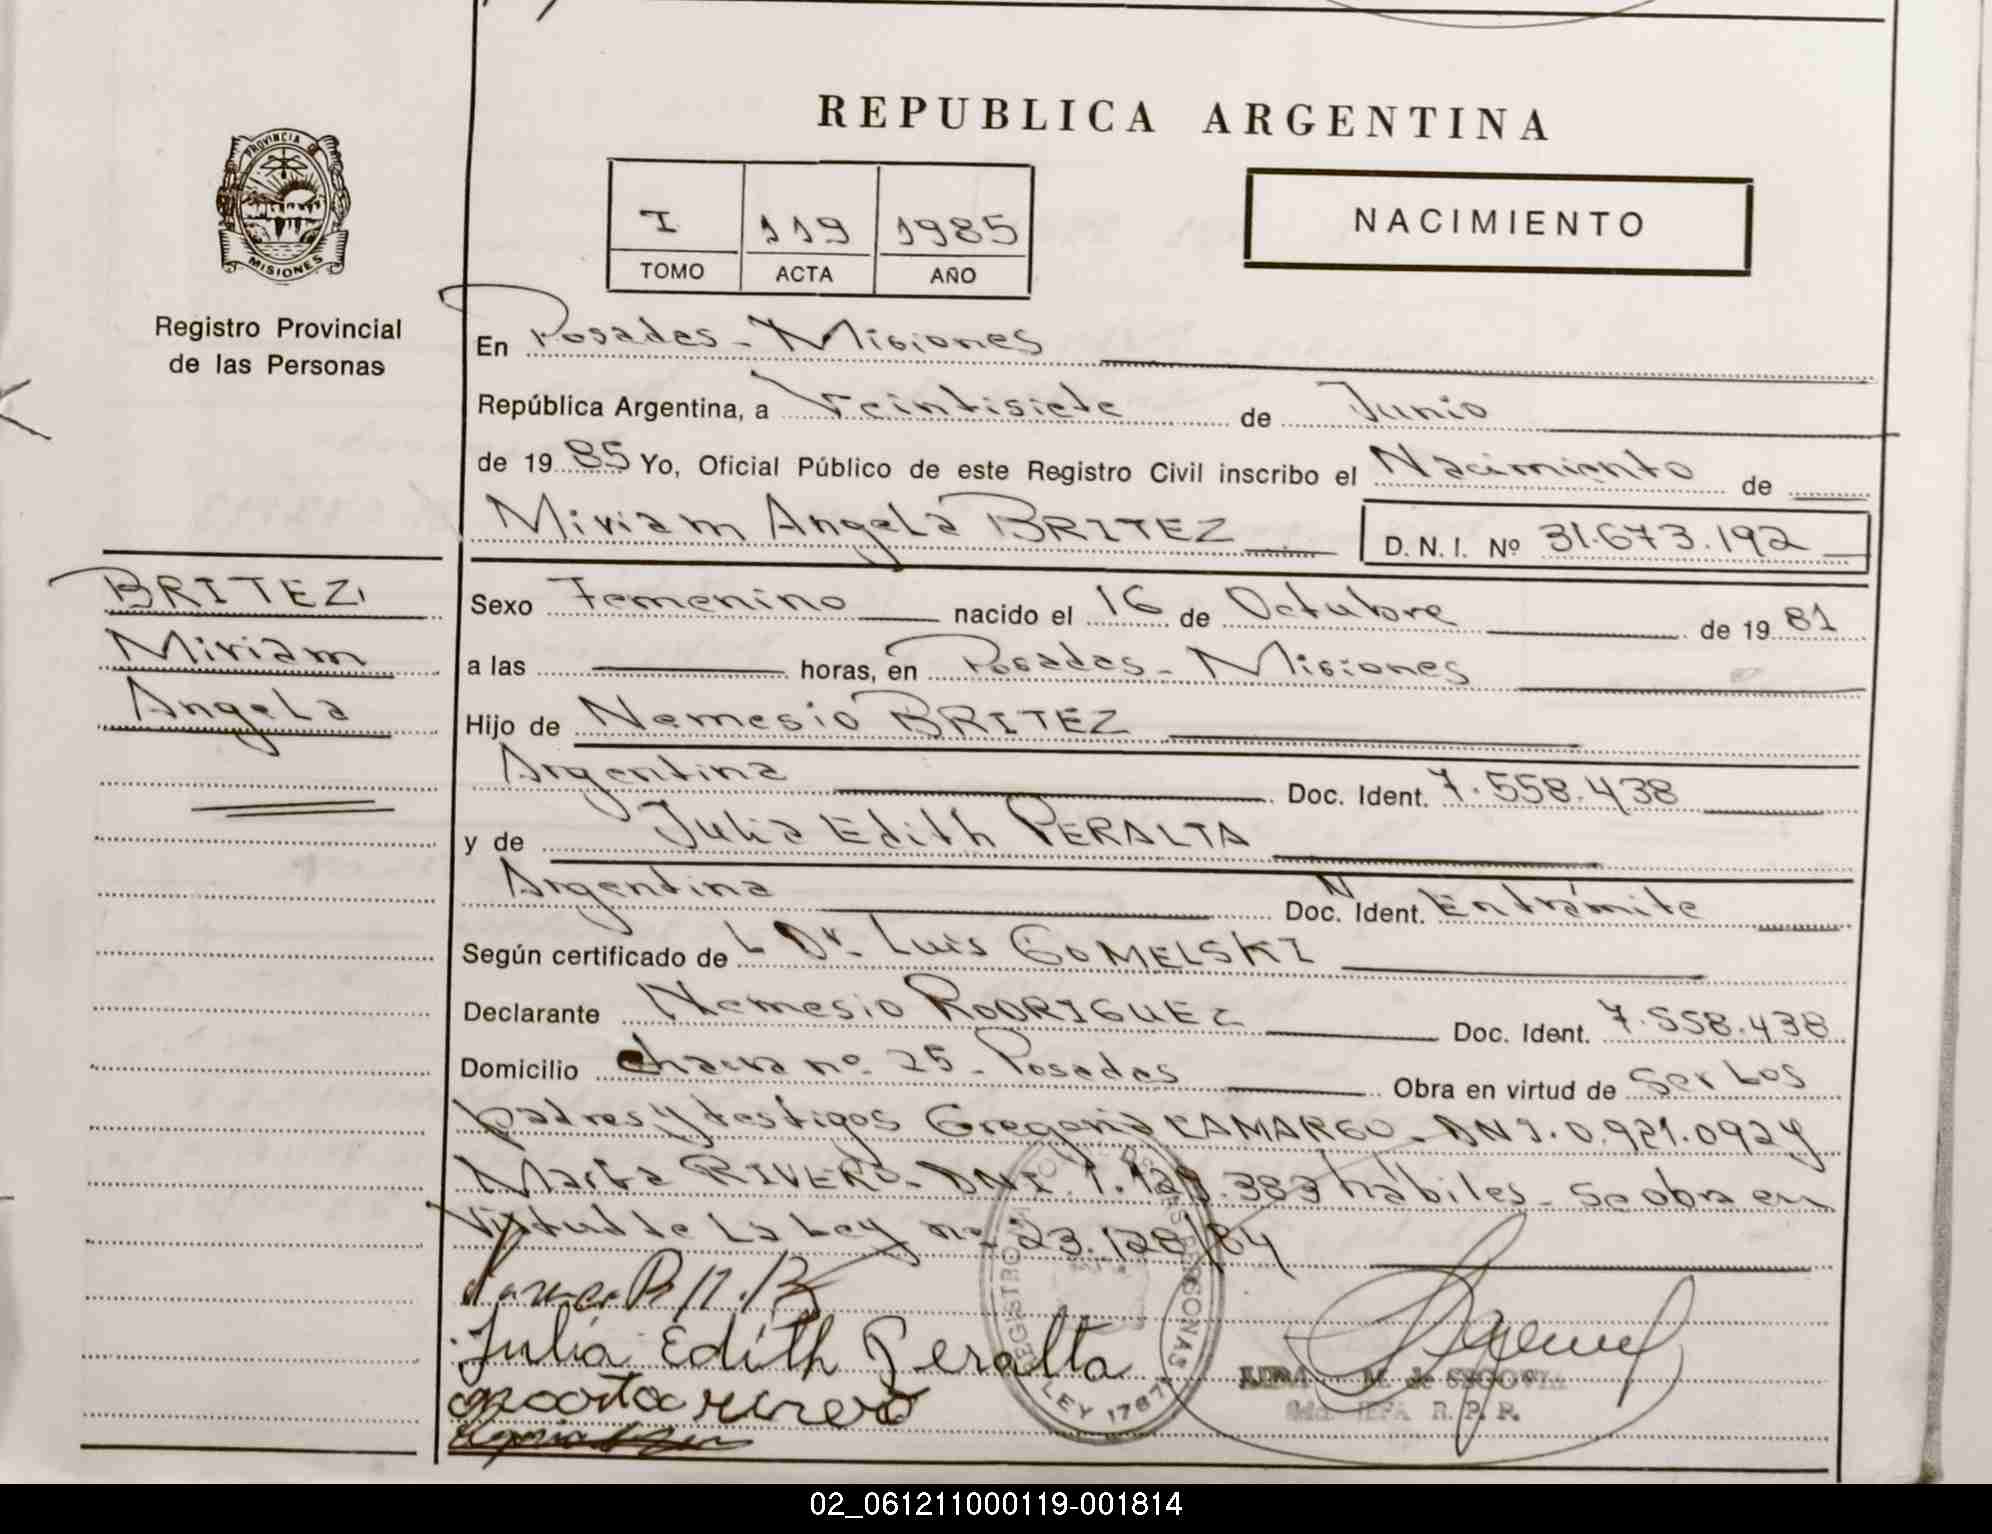 REPUBLICA ARGENTINA
PROVINCIA DE
MISIONES
Registro Provincial
de las Personas
I 119 1985
TOMO ACTA AÑO
NACIMIENTO
En Posadas - Misiones
República Argentina, a Veintisiete de Junio
de 19 85 Yo, Oficial Público de este Registro Civil inscribo el Nacimiento de
Miriam Angela BRITEZ D. N. I. Nº 31.673.192
BRITEZ,
Miriam
Angela
Sexo Femenino nacido el 16 de Octubre de 19 81
a las horas, en Posadas - Misiones
Hijo de Nemesio BRITEZ
Argentina Doc. Ident. 7.558.438
y de Julia Edith PERALTA
Argentina Doc. Ident. En trámite
Según certificado de L Dr. Luis GOMELSKI
Declarante Nemesio RODRIGUEZ Doc. Ident. 7.558.438
Domicilio chacra nº 25 - Posadas Obra en virtud de ser los
padres y testigos Gregoria CAMARGO - DNI. 0.921.092 y
Marta RIVERO - DNI 1.129.383 hábiles - se obra en
Virtud de La Ley nº 23.128/84
Julia Edith Peralta
marta rivero
LEY 1767
M. de SEGOVIA
JEFA R. P. P.
02_061211000119-001814